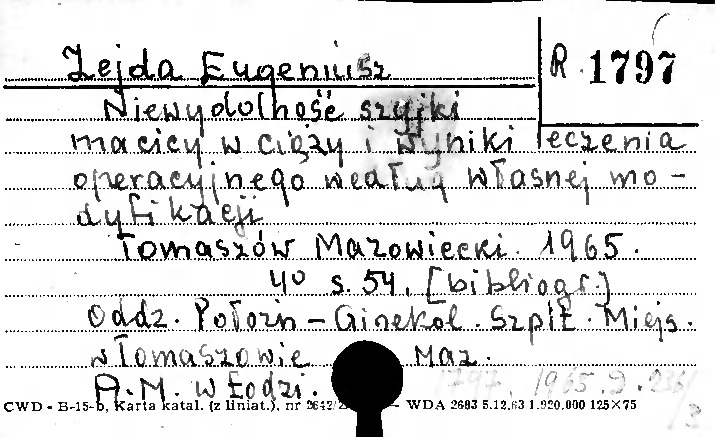 Zejda Eugeniusz
R. 1797
Niewydolność szyjki
macicy w ciąży i wyniki leczenia
operacyjnego według własnej mo-
dyfikacji
Tomaszów Mazowiecki. 1965.
4° s. 54. [bibliogr.]
Oddz. Położn-Ginekol. Szpit. Miejs.
w Tomaszowie Maz.
A.M. w Łodzi.
1797, 1965.D.236/3
CWD - B-15-b, Karta katal. (z liniat.), nr 2642/ - WDA 2683 5.12.63 1.920.000 125×75